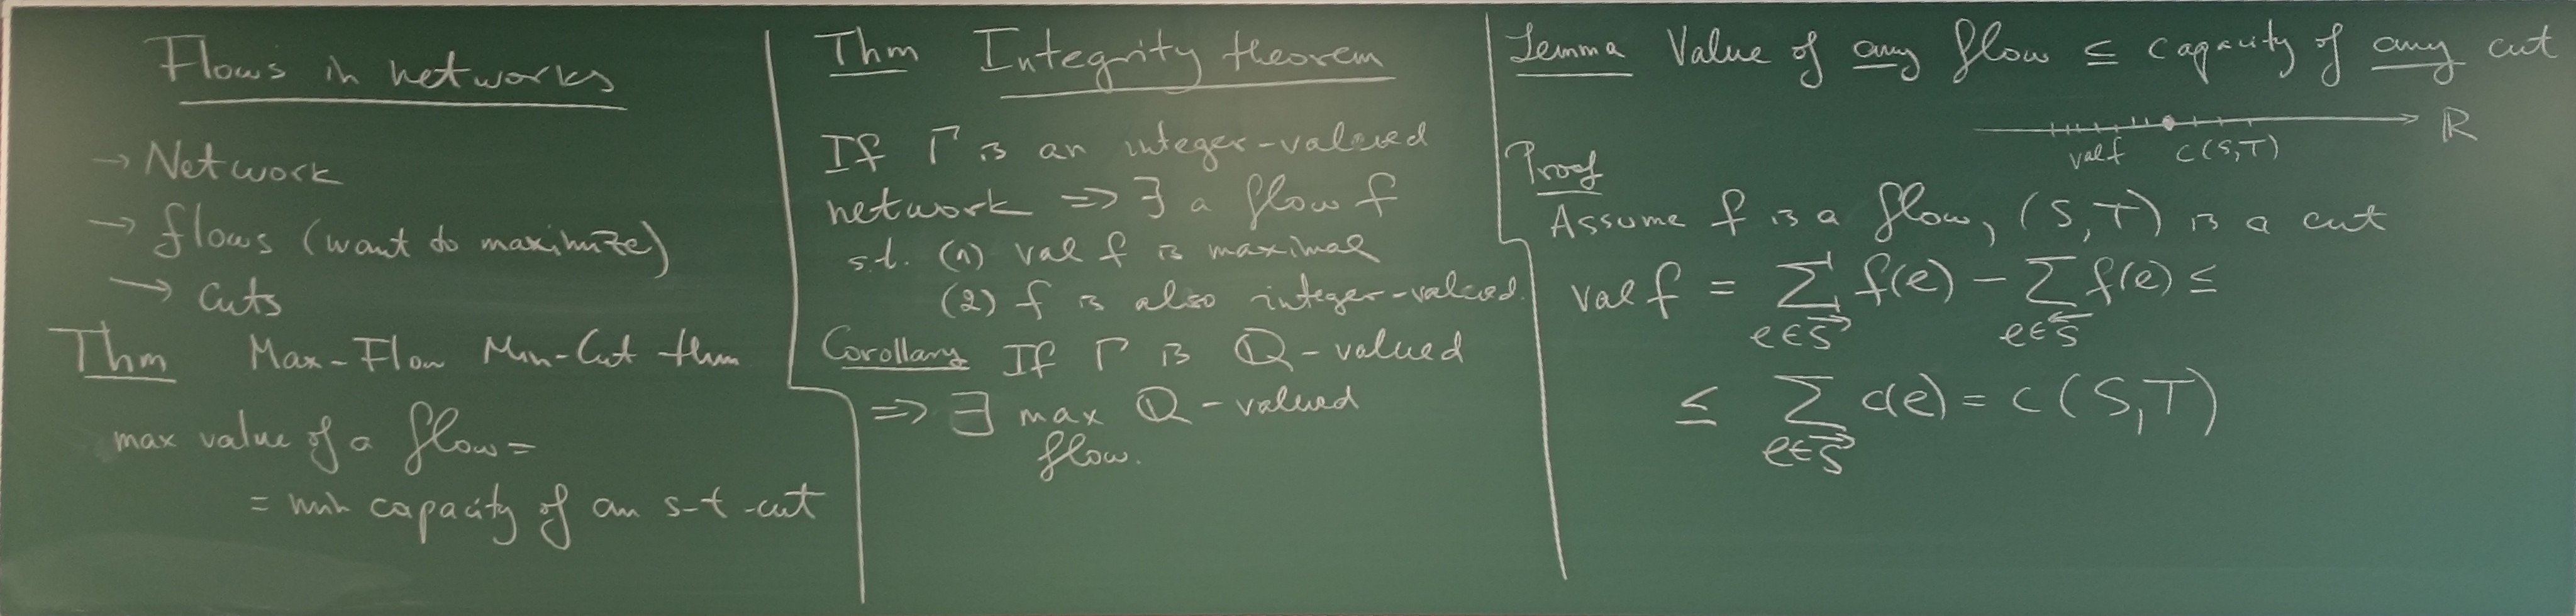 Flows in networks
→ Network
→ flows (want to maximize)
→ Cuts
Thm Max-Flow Min-Cut thm
max value of a flow =
= min capacity of an s-t-cut
Thm Integrity theorem
If Γ is an integer-valued
network ⇒ ∃ a flow f
s.t. (1) val f is maximal
(2) f is also integer-valued.
Corollary If Γ is ℚ-valued
⇒ ∃ max ℚ-valued
flow.
Lemma Value of any flow ≤ capacity of any cut
ℝ
val f c(S,T)
Proof
Assume f is a flow, (S,T) is a cut
val f = ∑ f(e) − ∑ f(e) ≤
e∈S⃗ e∈S⃖
≤ ∑ c(e) = c(S,T)
e∈S⃗